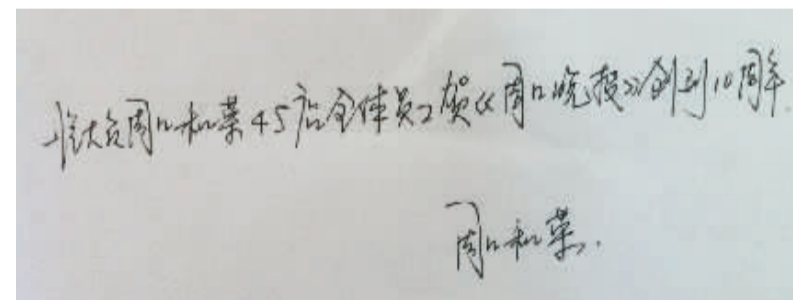 周口和荣4S店全体员工贺《周口晚报》创刊10周年
周口和荣.